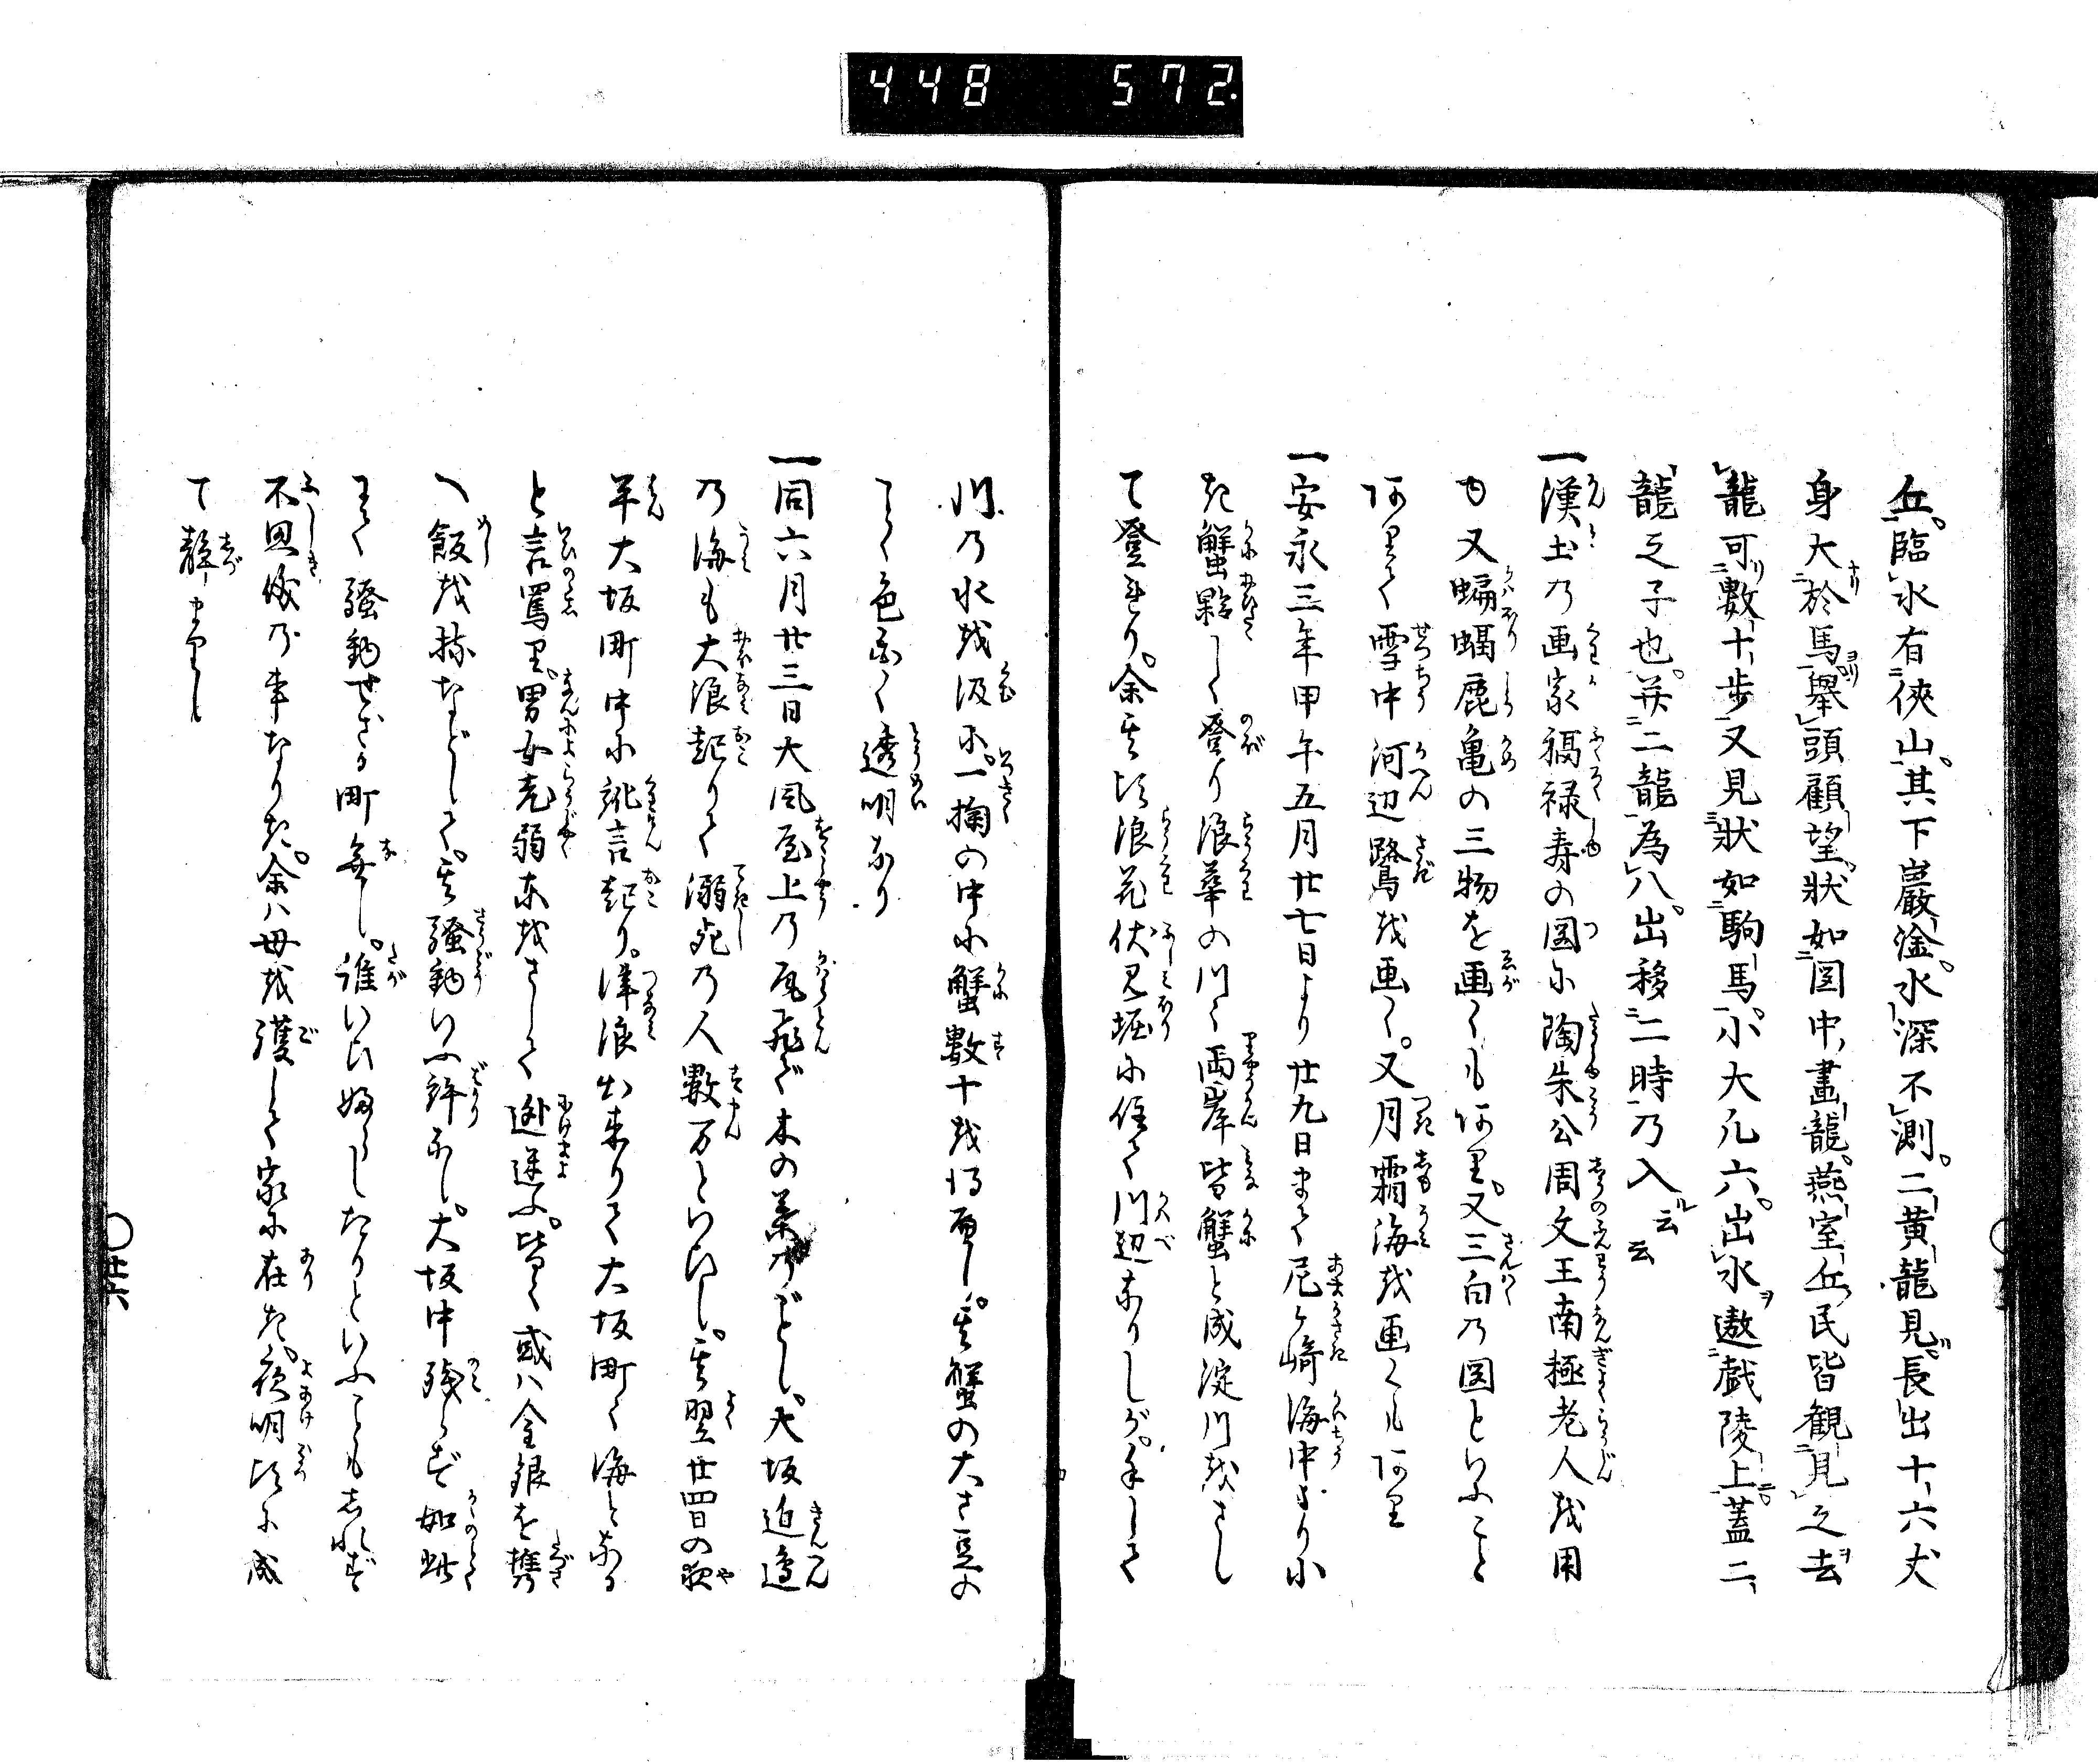 448 572.
丘。臨水有俠山。其下巖淦。水深不測。二黄龍見。長出十六丈
身大於馬。舉頭顧望。狀如図中畫龍。燕室丘民皆観見之去
龍可數十歩又見狀如駒馬。小大凡六。出水遨戯陵上蓋二
龍之子也。并二龍為八。出移二時乃入云云
一漢土乃画家福禄寿の図に陶朱公周文王南極老人越用
ゆ又蝙蝠鹿亀の三物を画くも阿里。又三白の図といふこと
阿里て雪中河辺鷺越画く。又月霜海越画くも阿里
一安永三年甲午五月廿七日より廿九日まて尼ヶ崎海中より小
き蟹夥しく登り浪華の川々両岸皆蟹と成淀川越さし
て登きり。余其頃浪花伏見堀に住て川辺なりしが。手して
川乃水越汲に。一掬の中に蟹數十越得へし。其蟹の大さ豆の
ことく色白く透明なり
一同六月廿三日大風屋上乃瓦飛ぶ木の葉のごとし。大坂近邊
乃海も大浪起りて溺死乃人數万といひし。其翌廿四日の夜
半大坂町中に訛言起り。津浪出来りて大坂町々海となる
と言罵里。男女老弱東越さして逃迷ふ。皆々或ハ金銀を携
へ飯越持などして。其騒動いふ許なし。大坂中残らず如此
きて騒動せざる町無し。誰いひ始めしたりといふこともしれず
不思儀乃事なりき。余ハ母越護して家に在き。夜明頃に成
て静まりし
〇廿六